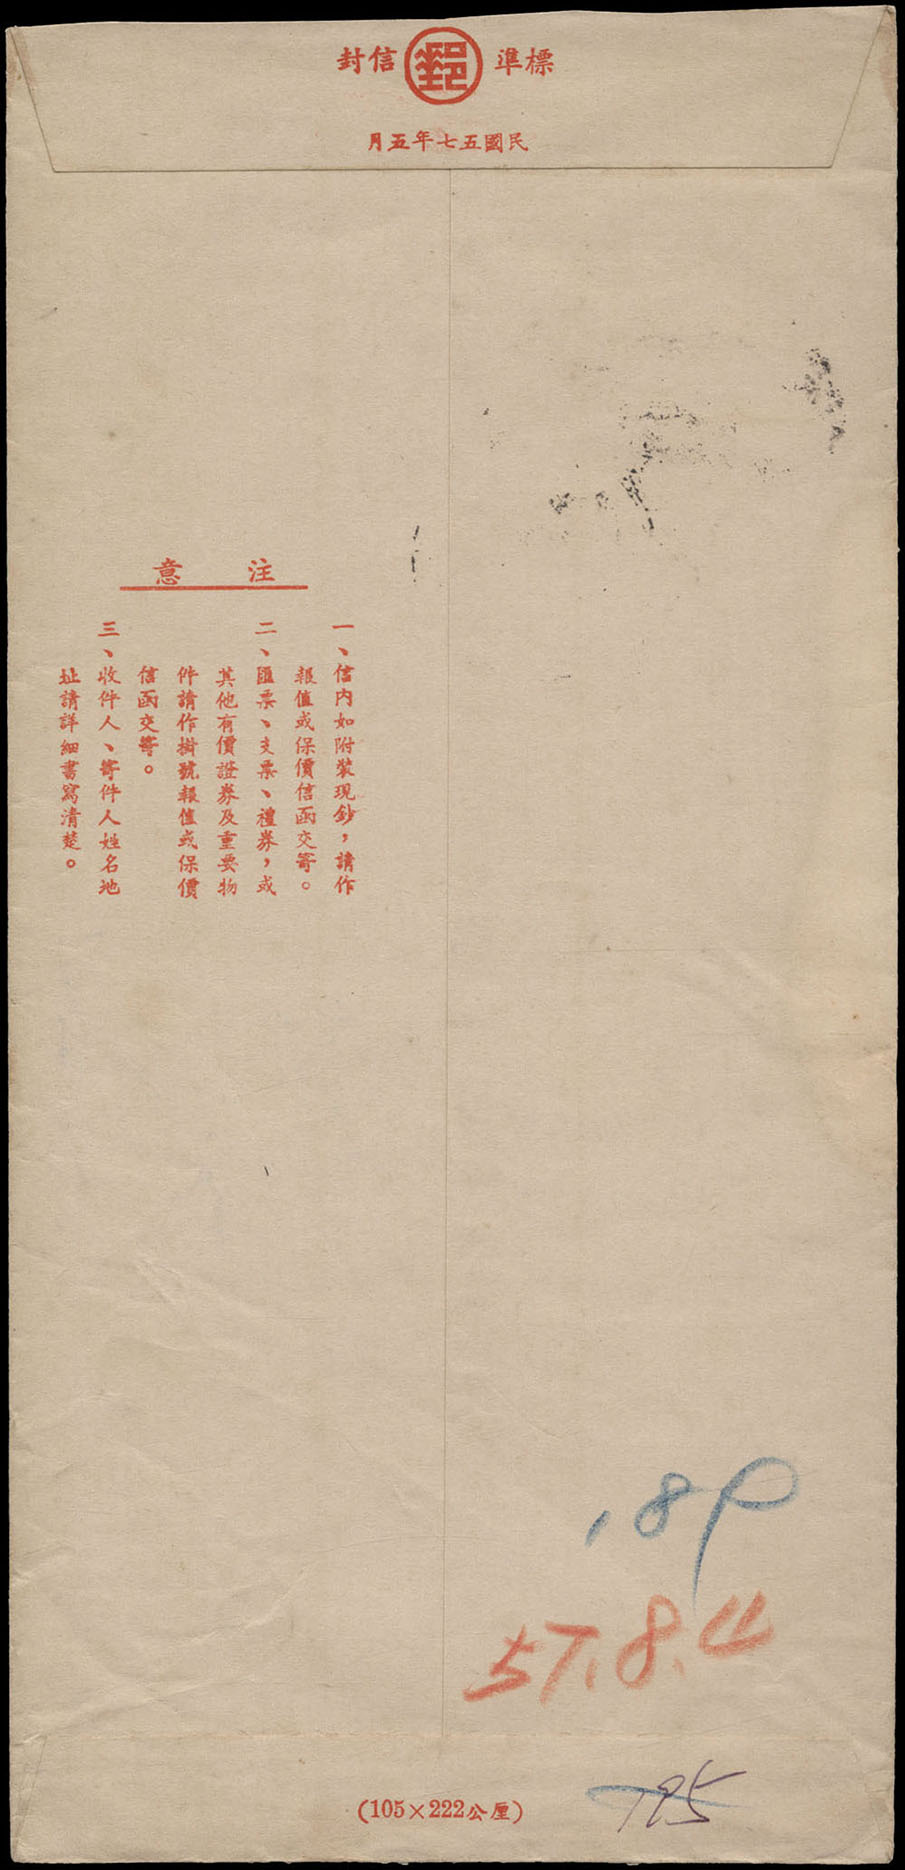 標準 郵 信封
民國五七年五月
注意
一、信內如附裝現鈔，請作
報值或保價信函交寄。
二、匯票、支票、禮券，或
其他有價證券及重要物
件請作掛號報值或保價
信函交寄。
三、收件人、寄件人姓名地
址請詳細書寫清楚。
57.8.4
195
(105×222公厘)